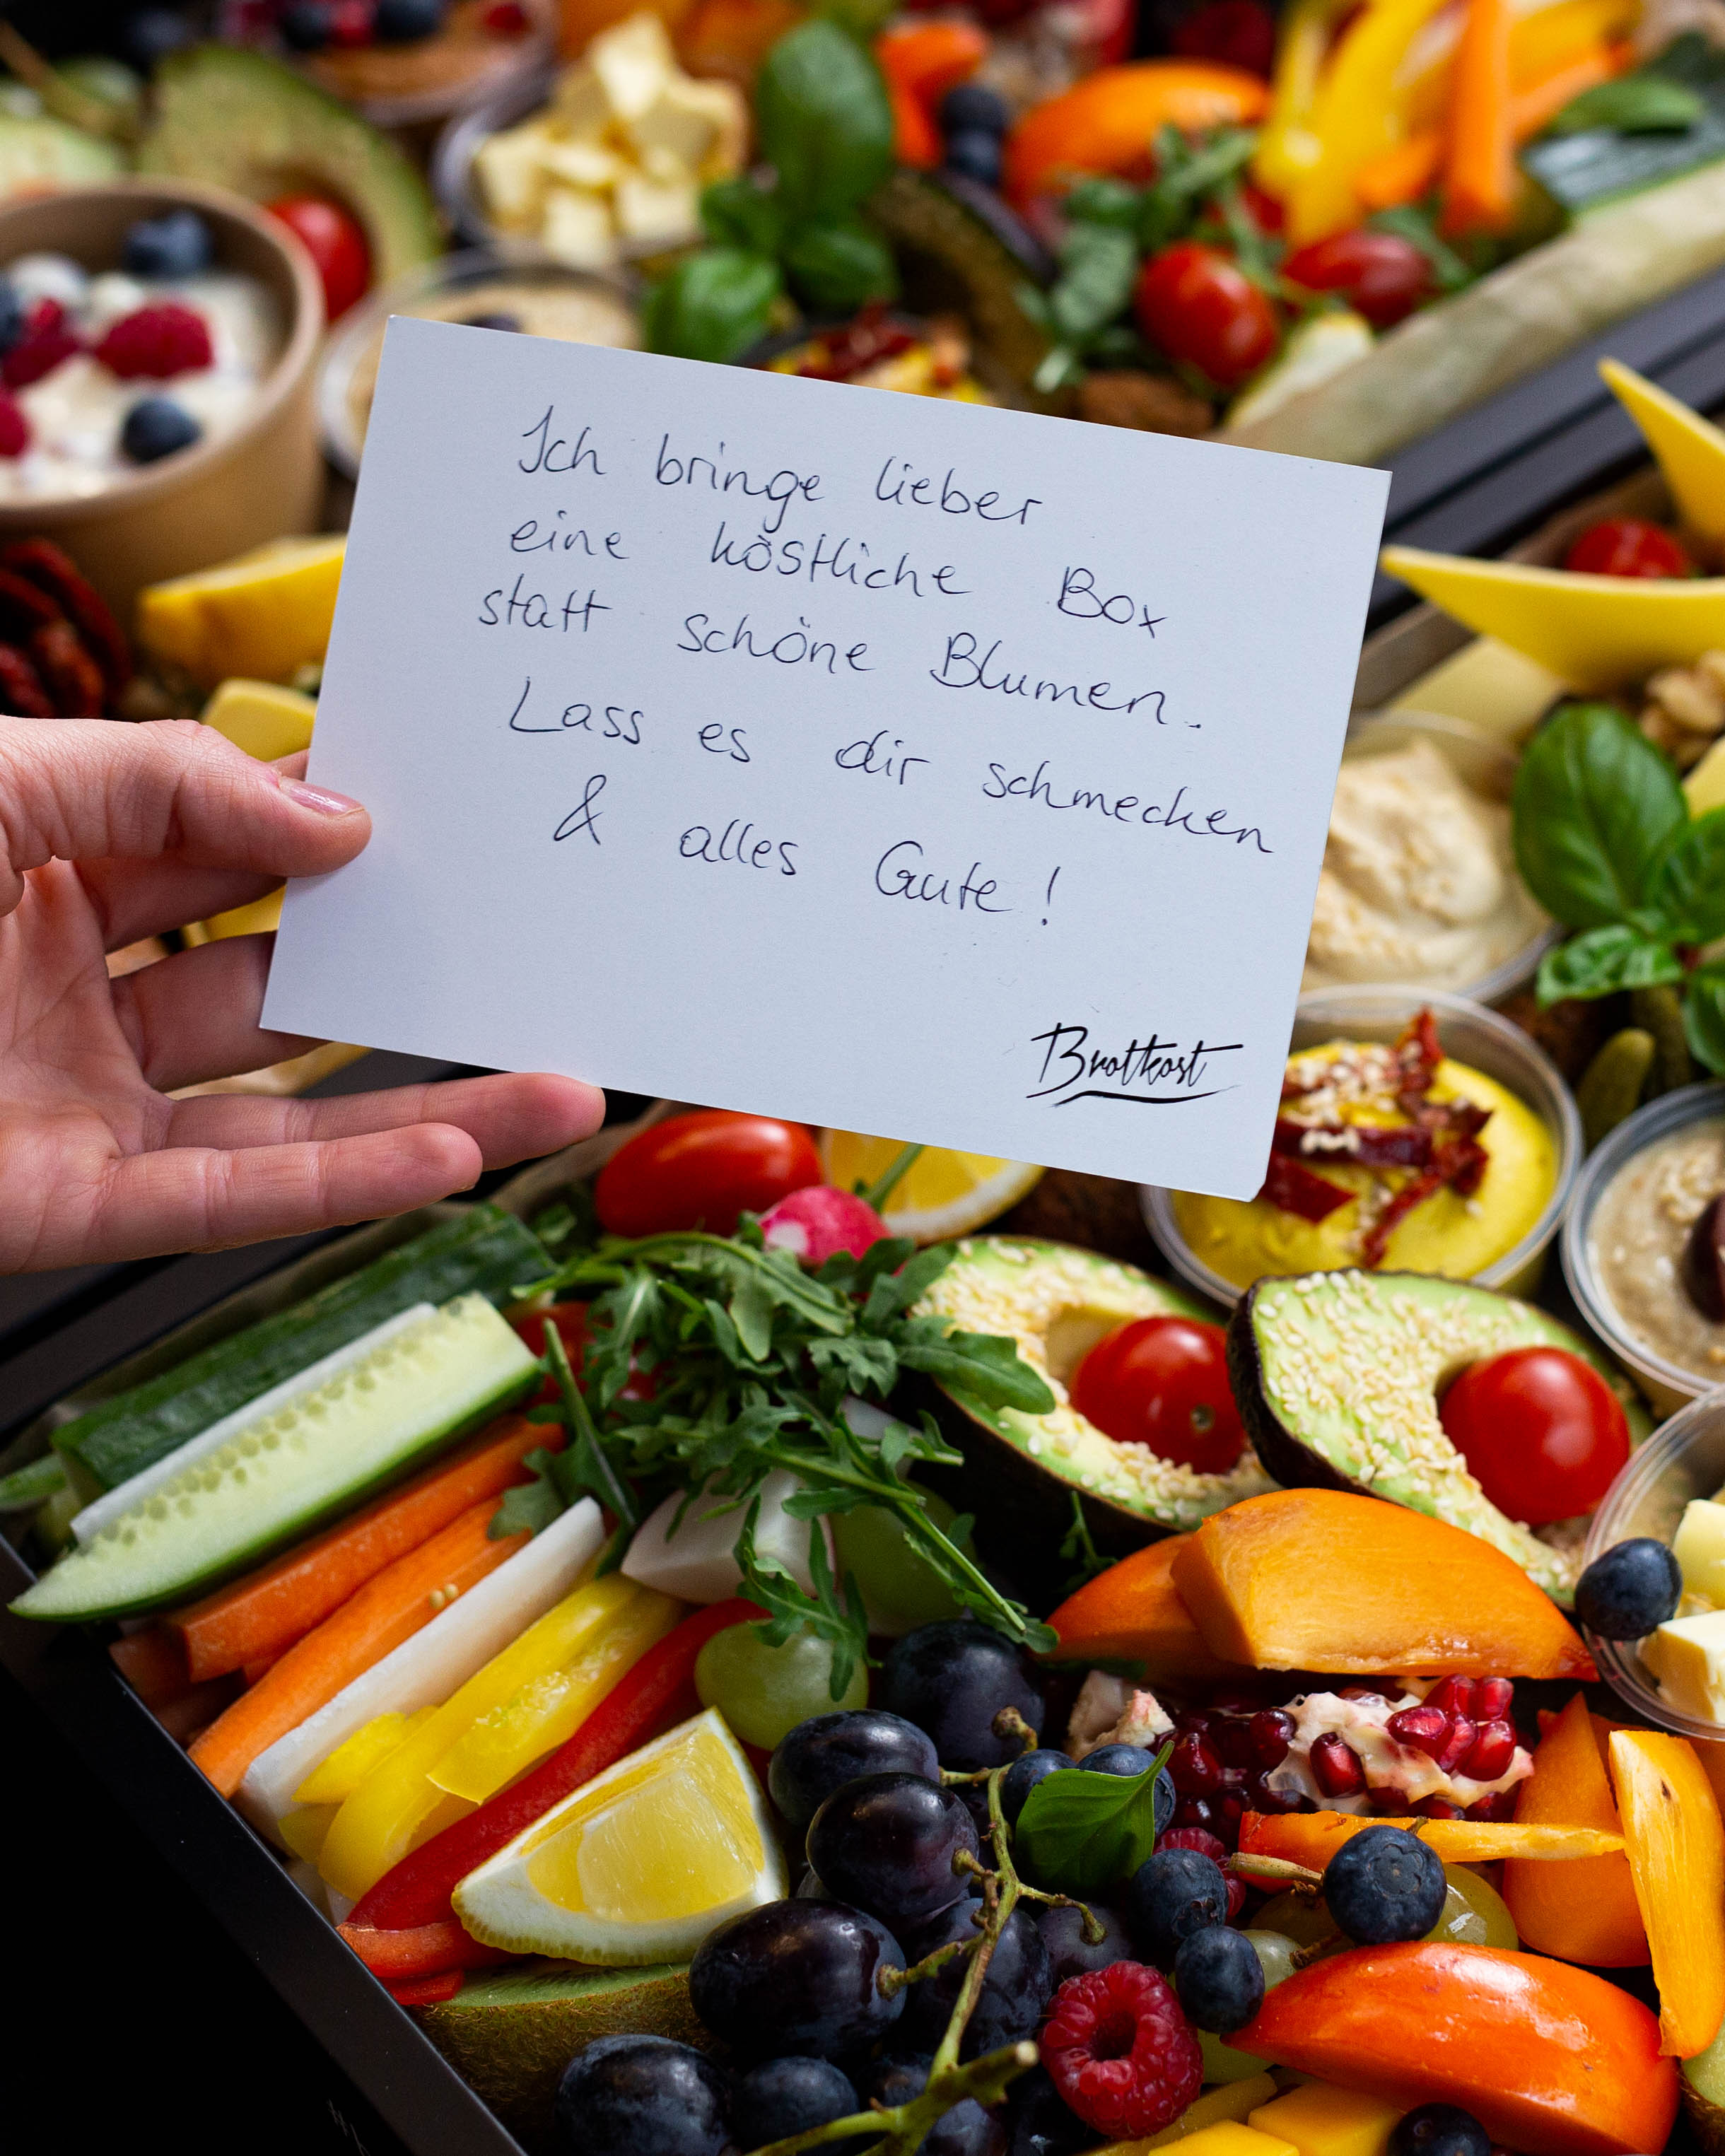 Ich bringe lieber
eine köstliche Box
statt schöne Blumen.
Lass es dir schmecken
& alles Gute!
Brotkost